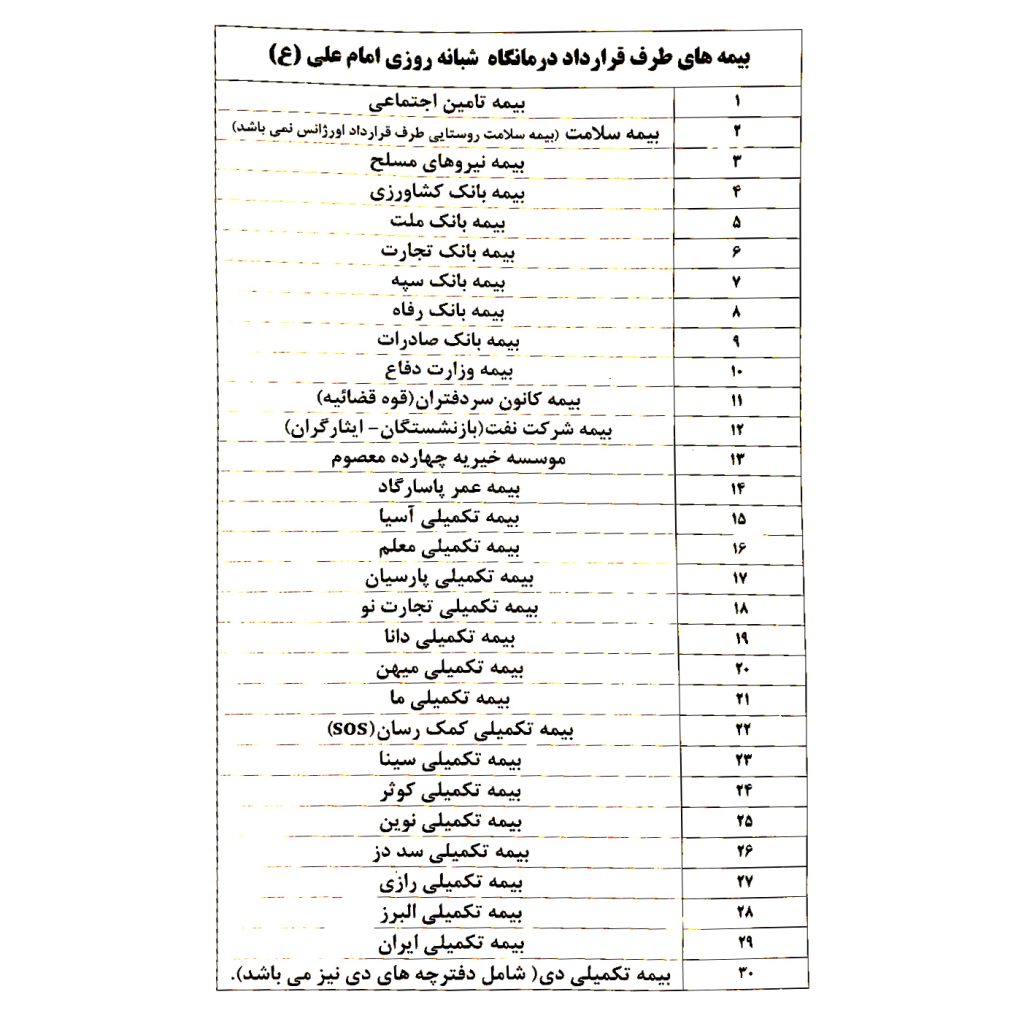 بیمه های طرف قرارداد درمانگاه شبانه روزی امام علی (ع)
۱ بیمه تامین اجتماعی
۲ بیمه سلامت (بیمه سلامت روستایی طرف قرارداد اورژانس نمی باشد)
۳ بیمه نیروهای مسلح
۴ بیمه بانک کشاورزی
۵ بیمه بانک ملت
۶ بیمه بانک تجارت
۷ بیمه بانک سپه
۸ بیمه بانک رفاه
۹ بیمه بانک صادرات
۱۰ بیمه وزارت دفاع
۱۱ بیمه کانون سردفتران(قوه قضائیه)
۱۲ بیمه شرکت نفت(بازنشستگان- ایثارگران)
۱۳ موسسه خیریه چهارده معصوم
۱۴ بیمه عمر پاسارگاد
۱۵ بیمه تکمیلی آسیا
۱۶ بیمه تکمیلی معلم
۱۷ بیمه تکمیلی پارسیان
۱۸ بیمه تکمیلی تجارت نو
۱۹ بیمه تکمیلی دانا
۲۰ بیمه تکمیلی میهن
۲۱ بیمه تکمیلی ما
۲۲ بیمه تکمیلی کمک رسان(sos)
۲۳ بیمه تکمیلی سینا
۲۴ بیمه تکمیلی کوثر
۲۵ بیمه تکمیلی نوین
۲۶ بیمه تکمیلی سد دز
۲۷ بیمه تکمیلی رازی
۲۸ بیمه تکمیلی البرز
۲۹ بیمه تکمیلی ایران
۳۰ بیمه تکمیلی دی( شامل دفترچه های دی نیز می باشد).